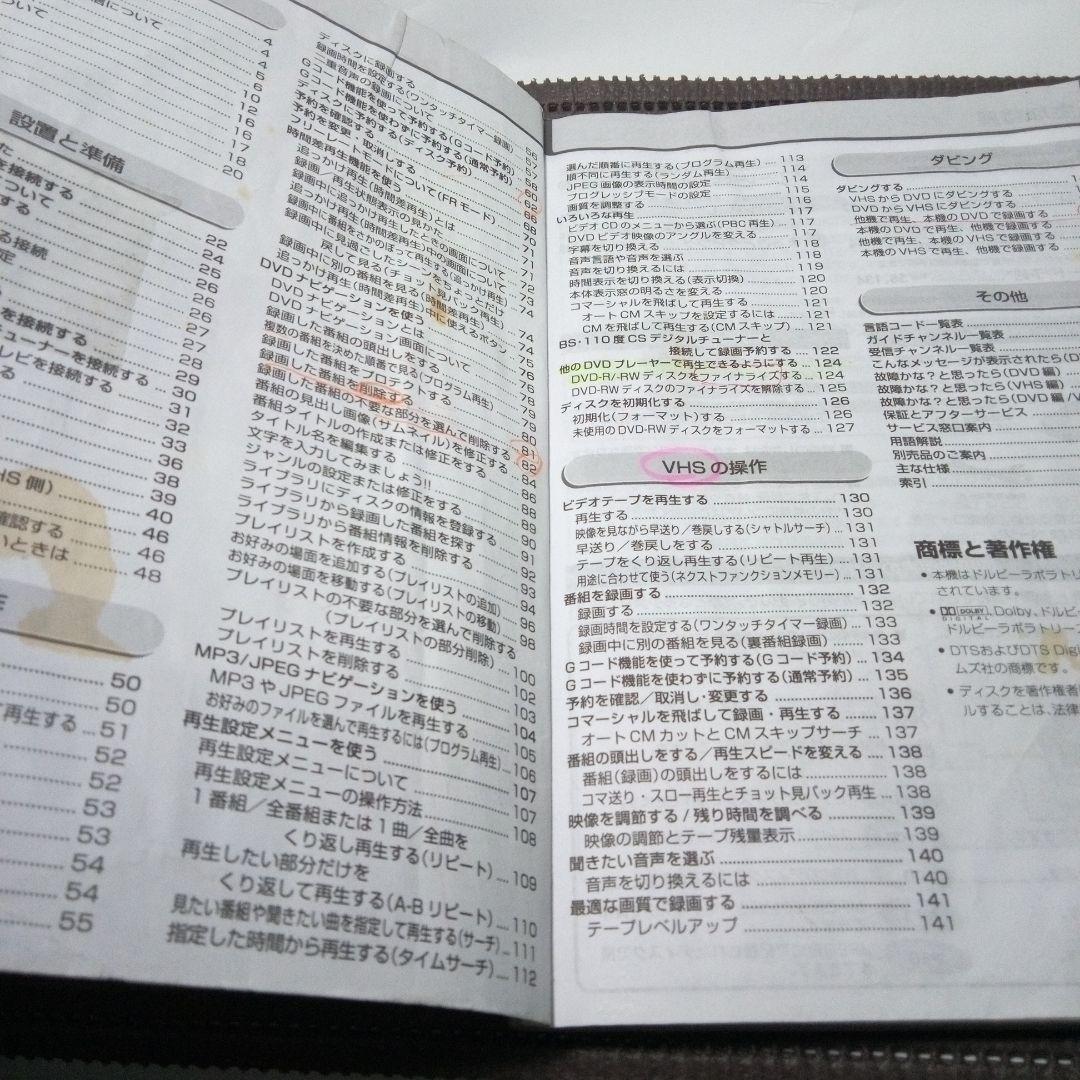 について
4
4
5
10
12
16
16
17
18
20
設置と準備
を接続する
について
する
22
24
25
26
26
27
27
28
29
30
31
32
33
36
38
39
40
46
46
48
を接続する
チューナーを接続する
レビを接続する
HS側)
確認する
いときは
50
50
再生する ...51
52
52
53
53
54
54
55
ディスクに録画する
録画時間を設定する(ワンタッチタイマー録画)
二重音声の録画について
Gコード機能を使って予約する(Gコード予約)
Gコード機能を使わずに予約する(通常予約)
予約を確認する(ディスク予約)
予約を変更・取消しする
フリーレートモードについて(FRモード)
時間差再生機能を使う
追っかけ再生(時間差再生)とは
録画/再生状態表示の見かた
録画中に追っかけ再生したときの画面について
録画中に番組をさかのぼって再生する(追っかけ再生)
録画中に見過ごしたシーンをちょっとだけ
戻して見る(チョット見バック再生)
録画中に別の番組を見る(時間差再生)
追っかけ再生(時間差再生)中に使えるボタン
DVDナビゲーションを使う
DVDナビゲーションとは
DVDナビゲーション画面について
録画した番組の頭出しをする
複数の番組を決めた順番で見る(プログラム再生)
録画した番組をプロテクトする
録画した番組を削除する 80
録画した番組の不要な部分を選んで削除する 81
番組の見出し画像(サムネイル)を修正する 82
番組タイトルの作成または修正をする 84
タイトル名を編集する 86
文字を入力してみましょう!! 88
ジャンルの設定または修正をする 89
ライブラリにディスクの情報を登録する 90
ライブラリから録画した番組を探す 91
ライブラリから番組情報を削除する 92
プレイリストを作成する 93
お好みの場面を追加する(プレイリストの追加) 94
お好みの場面を移動する(プレイリストの移動) 96
プレイリストの不要な部分を選んで削除する
(プレイリストの部分削除) 98
プレイリストを再生する 100
プレイリストを削除する 102
MP3/JPEGナビゲーションを使う 103
MP3やJPEGファイルを再生する 104
お好みのファイルを選んで再生するには(プログラム再生) 105
再生設定メニューを使う 106
再生設定メニューについて 107
再生設定メニューの操作方法 107
1番組/全番組または1曲/全曲を 108
くり返し再生する(リピート) 109
再生したい部分だけを
くり返して再生する(A-Bリピート) 110
見たい番組や聞きたい曲を指定して再生する(サーチ) 111
指定した時間から再生する(タイムサーチ) 112
選んだ順番に再生する(プログラム再生) 113
順不同に再生する(ランダム再生) 114
JPEG画像の表示時間の設定 114
プログレッシブモードの設定 115
画質を調整する 116
いろいろな再生 117
ビデオCDのメニューから選ぶ(PBC再生) 117
DVDビデオ映像のアングルを変える 117
字幕を切り換える 118
音声言語や音声を選ぶ 118
音声を切り換えるには 119
時間表示を切り換える(表示切換) 120
本体表示窓の明るさを変える 120
コマーシャルを飛ばして再生する 121
オートCMスキップを設定するには 121
CMを飛ばして再生する(CMスキップ) 121
BS・110度CSデジタルチューナーと
接続して録画予約する 122
他のDVDプレーヤーで再生できるようにする 124
DVD-R/-RWディスクをファイナライズする 124
DVD-RWディスクのファイナライズを解除する 125
ディスクを初期化する 126
初期化(フォーマット)する 126
未使用のDVD-RWディスクをフォーマットする 127
VHSの操作
ビデオテープを再生する 130
再生する 130
映像を見ながら早送り/巻戻しする(シャトルサーチ) 131
早送り/巻戻しをする 131
テープをくり返し再生する(リピート再生) 131
用途に合わせて使う(ネクストファンクションメモリー) 131
番組を録画する 132
録画する 132
録画時間を設定する(ワンタッチタイマー録画) 133
録画中に別の番組を見る(裏番組録画) 133
Gコード機能を使って予約する(Gコード予約) 134
Gコード機能を使わずに予約する(通常予約) 135
予約を確認/取消し・変更する 136
コマーシャルを飛ばして録画・再生する 137
オートCMカットとCMスキップサーチ 137
番組の頭出しをする/再生スピードを変える 138
番組(録画)の頭出しをするには 138
コマ送り・スロー再生とチョット見バック再生 138
映像を調節する/残り時間を調べる 139
映像の調節とテープ残量表示 139
聞きたい音声を選ぶ 140
音声を切り換えるには 140
最適な画質で録画する 141
テープレベルアップ 141
ダビング
ダビングする
VHSからDVDにダビングする
DVDからVHSにダビングする
他機で再生、本機のDVDで録画する
本機のDVDで再生、他機で録画する
他機で再生、本機のVHSで録画する
本機のVHSで再生、他機で録画する
その他
言語コード一覧表
ガイドチャンネル一覧表
受信チャンネル一覧表
こんなメッセージが表示されたら(D
故障かな?と思ったら(DVD編)
故障かな?と思ったら(VHS編)
故障かな?と思ったら(DVD編/V
保証とアフターサービス
サービス窓口案内
用語解説
別売品のご案内
主な仕様
索引
商標と著作権
• 本機はドルビーラボラトリ
されています。
• DOLBY DIGITAL、Dolby、ドルビ
ドルビーラボラトリー
• DTSおよびDTS Digi
ムズ社の商標です。
• ディスクを著作権者
ルすることは、法律